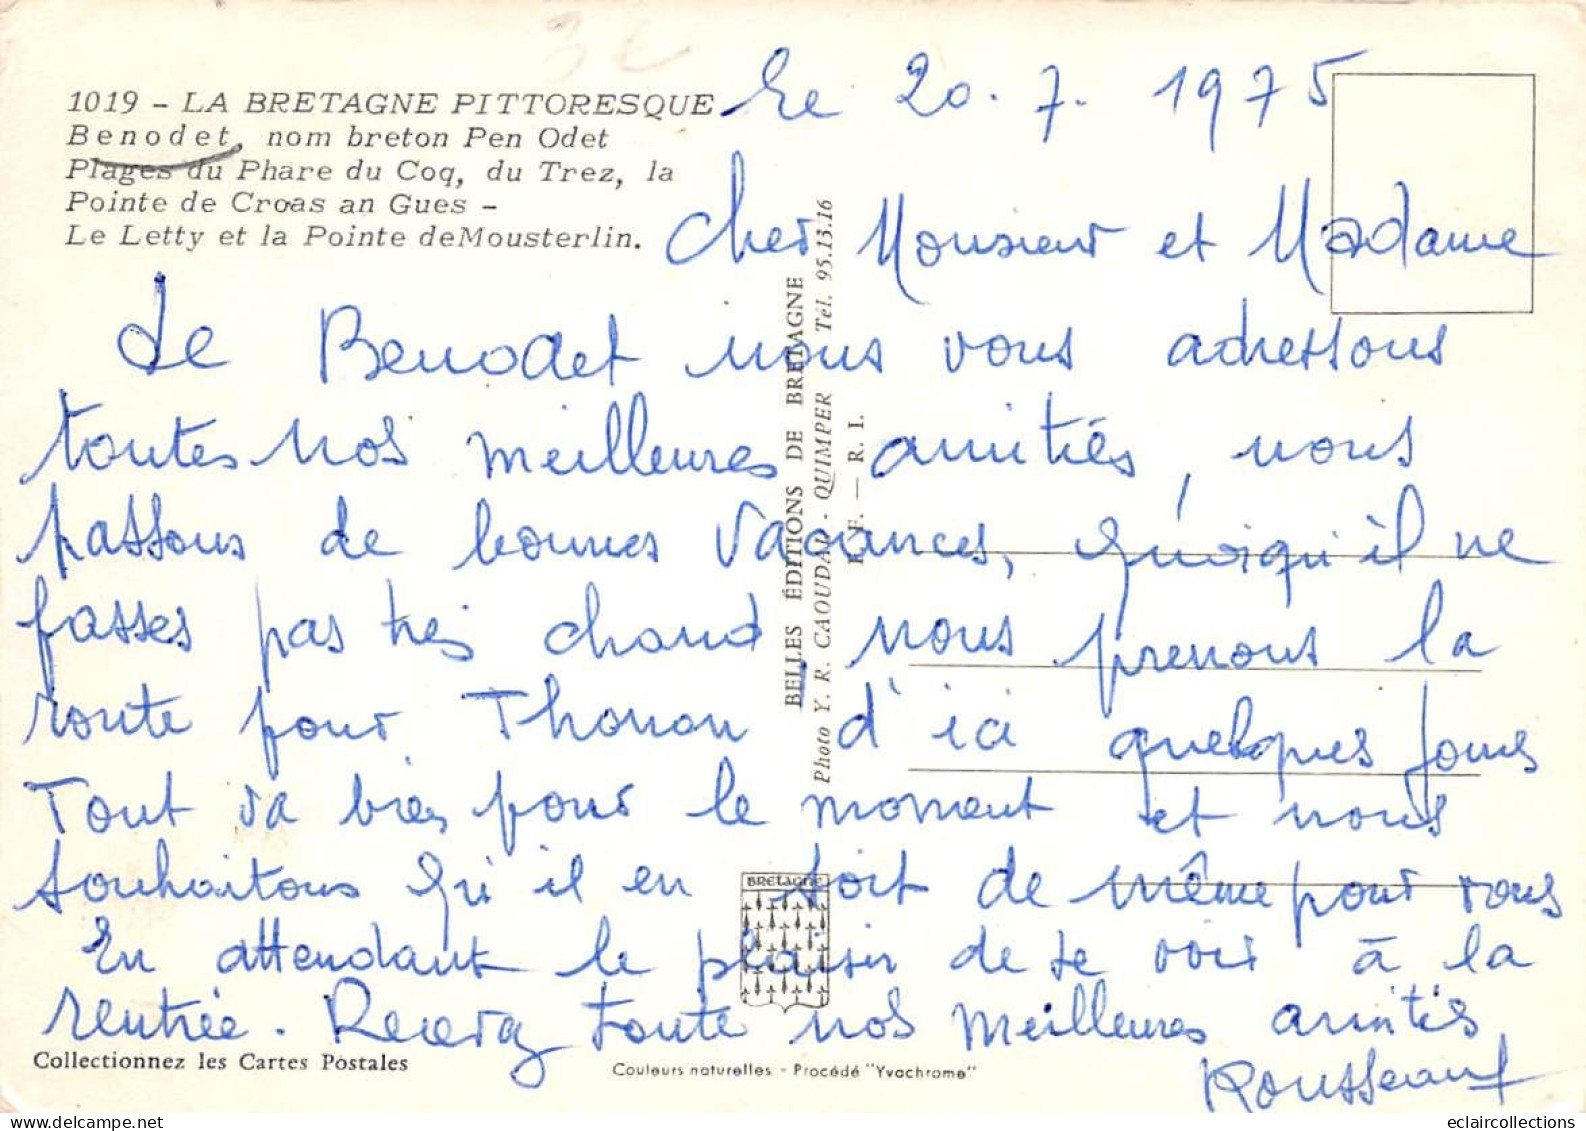 3€
1019 - LA BRETAGNE PITTORESQUE
Benodet, nom breton Pen Odet
Plages du Phare du Coq, du Trez, la
Pointe de Croas an Gues -
Le Letty et la Pointe deMousterlin.
Le 20.7.1975
Cher Monsieur et Madame
De Benodet nous vous adressons
toutes nos meilleures amitiés, nous
passons de bonnes vacances, quoiqu'il ne
fasses pas très chaud, nous prenons la
route pour Thonon d'ici quelques jours
Tout va bien pour le moment et nous
souhaitons qu'il en soit de même pour vous
En attendant le plaisir de se voir à la
rentrée. Recevez toute nos meilleures amitiés
Rousseau
BELLES ÉDITIONS DE BRETAGNE
Photo Y. R. CAOUDAL - QUIMPER Tél. 95.13.16
F. — R. I.
BRETAGNE
Collectionnez les Cartes Postales
Couleurs naturelles - Procédé "Yvachrome"
eclaircollections